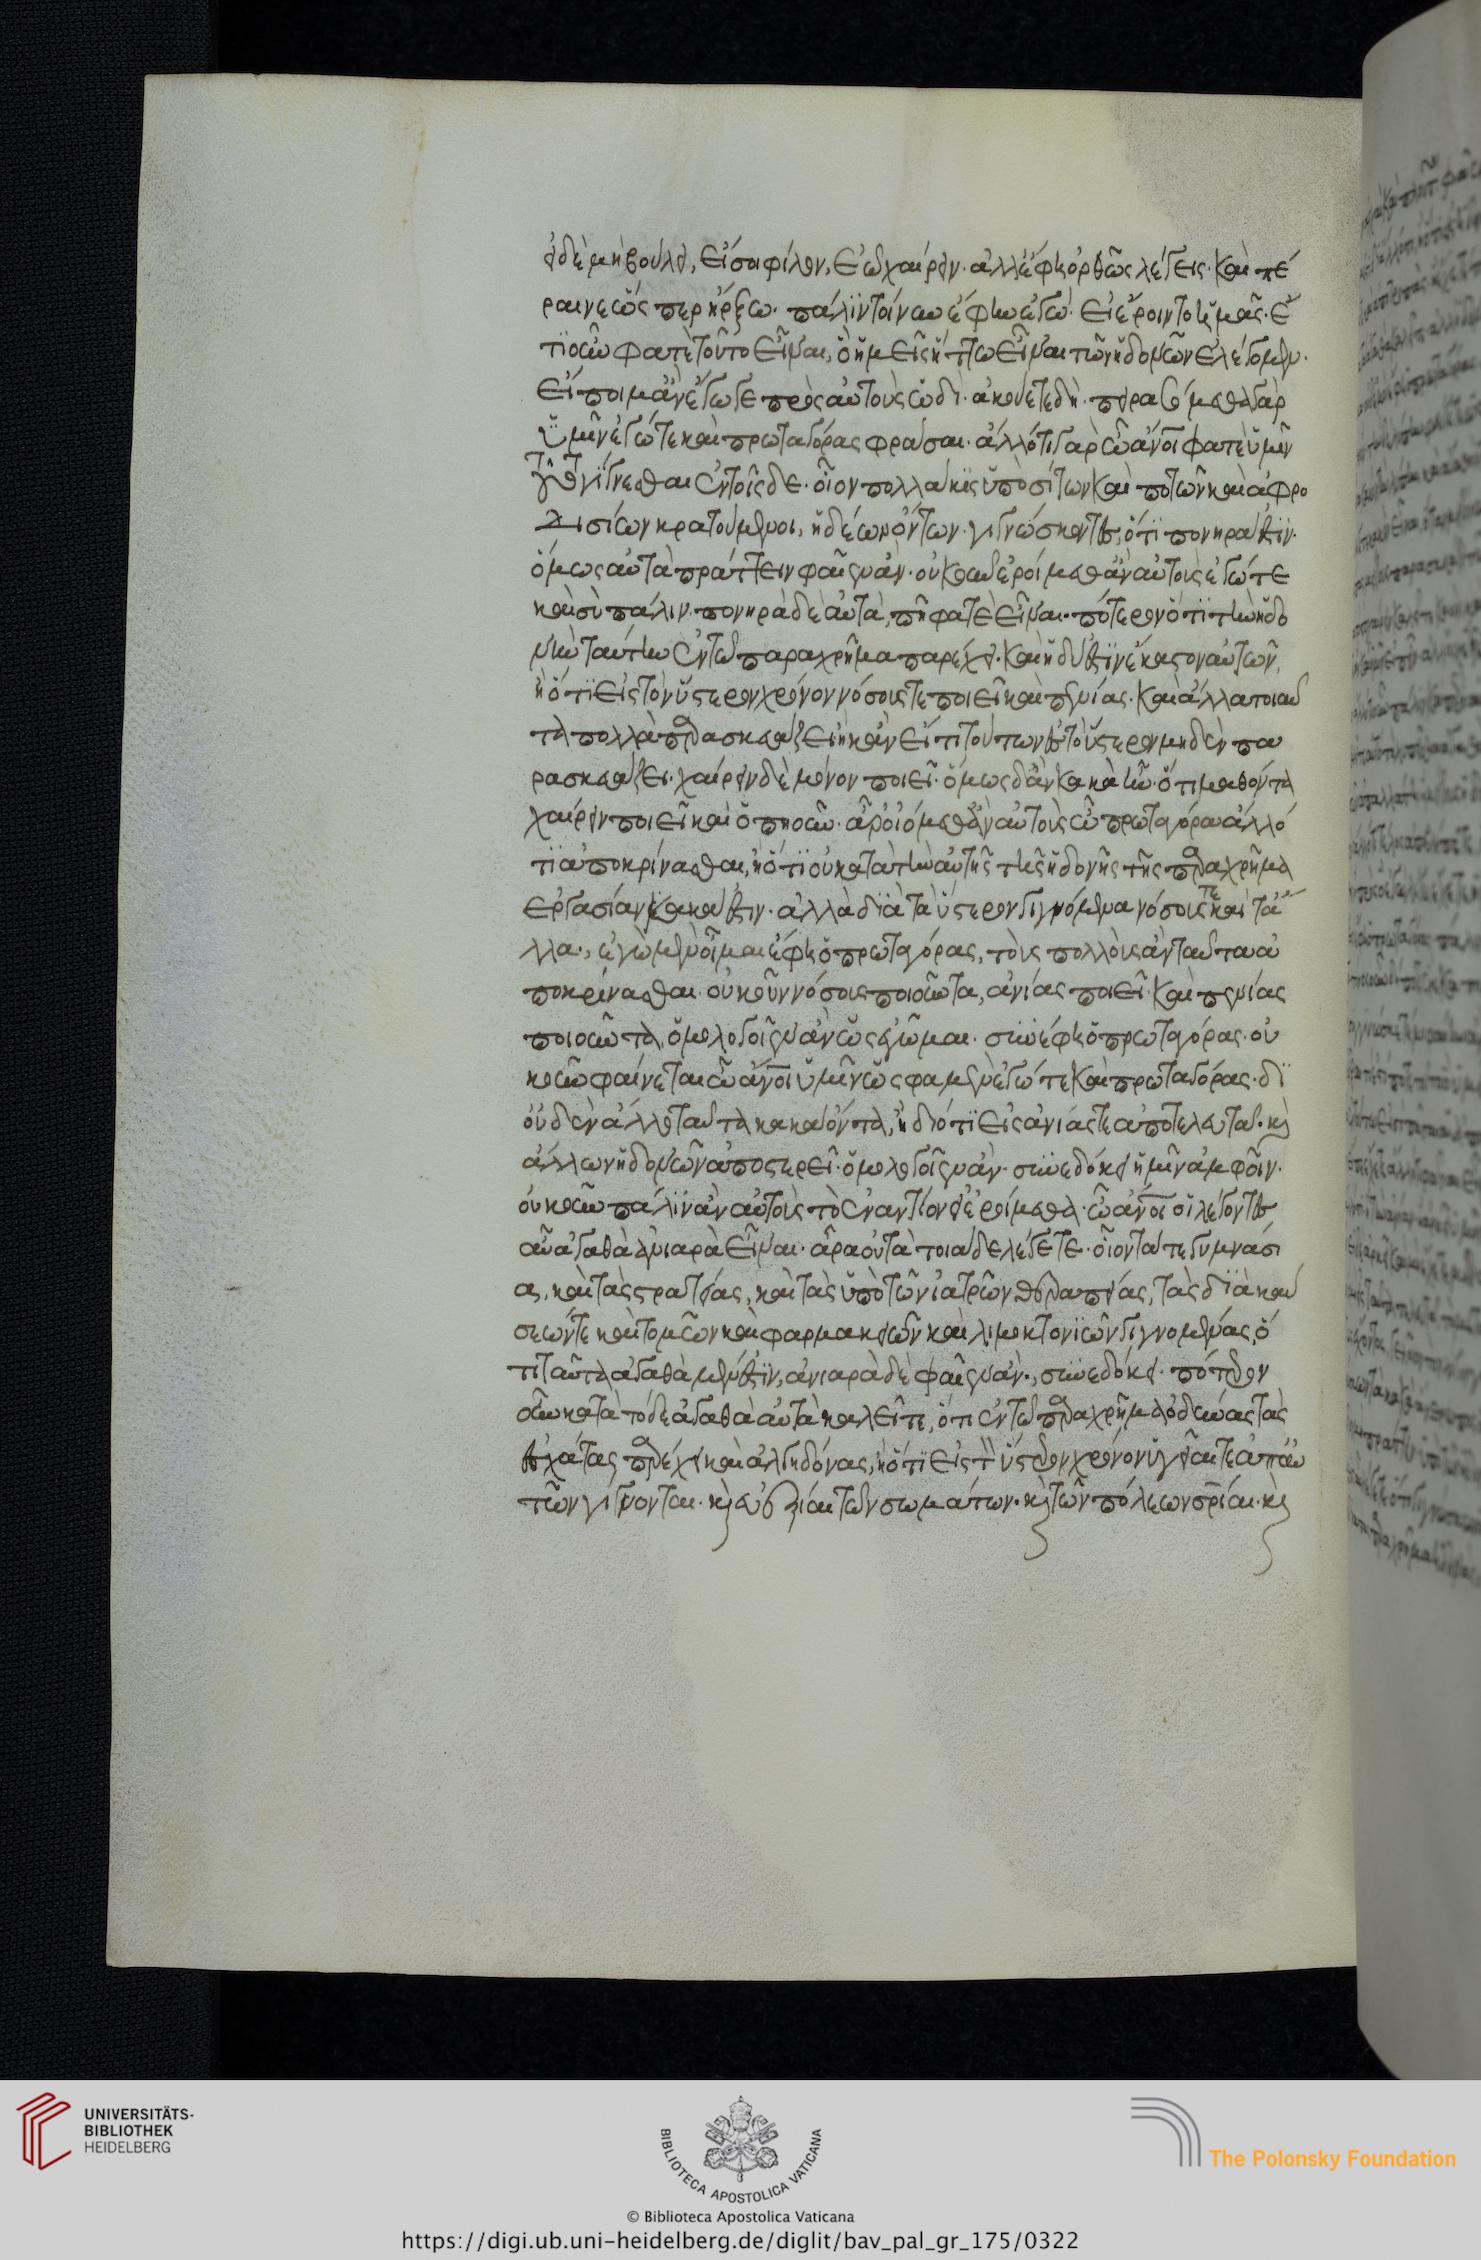 εἰ δὲ μὴ βούλει, εἴ σοι φίλον, ἐῶ χαίρειν· ἀλλ' ἔφη ὀρθῶς λέγεις· καὶ πέ
ραινε ὥσπερ ἤρξω· πάλιν τοίνυν ἔφην ἐγώ· εἰ ἔροιντο ἡμᾶς· ἔ
τι οὖν φατὲ τοῦτο εἶναι, ὃ ἡμεῖς ἥττω εἶναι τῶν ἡδονῶν ἐλέγομεν·
εἴποιμ' ἂν ἔγωγε πρὸς αὐτοὺς ὡδί· ἀκούετε δή· πειρασόμεθα γὰρ
ὑμῖν ἐγώ τε καὶ πρωταγόρας φράσαι· ἄλλό τι γὰρ ὦ ἄνοι φατὲ ὑμῖν
τοῦτο γίγνεσθαι ἐν τοῖσδε· οἷον πολλάκις ὑπὸ σίτων καὶ ποτῶν καὶ ἀφρο
δισίων κρατούμενοι, ἡδέων ὄντων· γιγνώσκοντες, ὅτι πονηρά ἐστιν·
ὅμως αὐτὰ πράττειν φαῖεν ἄν· οὐκοῦν ἐροίμεθ' ἂν αὐτοὺς ἐγώ τε
καὶ σὺ πάλιν· πονηρὰ δὲ αὐτὰ, πῇ φατὲ εἶναι· πότερον ὅτι τὴν ἡδο
νὴν ταύτην ἐν τῷ παραχρῆμα παρέχει· καὶ ἡδύ ἐστιν ἕκαστον αὐτῶν,
ἢ ὅτι εἰς τὸν ὕστερον χρόνον νόσους τε ποιεῖ καὶ πενίας· καὶ ἄλλα τοιαῦ
τα πολλὰ παρασκευάζει ἢ κἂν εἴ τι τούτων ἐς τὸ ὕστερον μηδὲν πα
ρασκευάζει· χαίρειν δὲ μόνον ποιεῖ· ὅμως δ' ἂν κακὰ ἦν· ὅτι μαθόντα
χαίρειν ποιεῖ καὶ ὅπῃ οὖν· ἆρ' οἰόμεθ' ἂν αὐτοὺς ὦ πρωταγόρα ἄλλό
τι ἀποκρίνασθαι, ἢ ὅτι οὐ κατὰ τὴν αὐτῆς τῆς ἡδονῆς τῆς παραχρῆμα
ἐργασίαν κακά ἐστιν· ἀλλὰ διὰ τὰ ὕστερον γιγνόμενα νόσους τε καὶ τἆ
λλα·, ἐγὼ μὲν οἶμαι ἔφη ὁ πρωταγόρας, τοὺς πολλοὺς ἂν ταῦτα ἀ
ποκρίνασθαι· οὐκοῦν νόσους ποιοῦντα, ἀνίας ποιεῖ· καὶ πενίας
ποιοῦντα, ὁμολογοῖεν ἂν ὡς ἐγᾦμαι· συνέφη ὁ πρωταγόρας· οὐ
κοῦν φαίνεται ὦ ἄνοι ὑμῖν ὥς φαμεν ἐγώ τε καὶ πρωταγόρας· δι
οὐδὲν ἄλλο ταῦτα κακὰ ὄντα, ἢ διότι εἰς ἀνίας τε ἀποτελευτᾷ· κὶ
ἄλλων ἡδονῶν ἀποστερεῖ· ὁμολογοῖεν ἄν· συνεδόκει ἡμῖν ἀμφοῖν·
οὐκοῦν πάλιν ἂν αὐτοὺς τὸ ἐναντίον εἰ ἐροίμεθα· ὦ ἄνοι οἱ λέγοντες
αὖ ἀγαθὰ ἀνιαρὰ εἶναι· ἆρα οὐ τὰ τοιάδε λέγετε· οἷον τά τε γυμνάσι
α, καὶ τὰς στρατείας, καὶ τὰς ὑπὸ τῶν ἰατρῶν θεραπείας, τὰς διὰ καύ
σεών τε καὶ τομῶν καὶ φαρμακειῶν καὶ λιμοκτονιῶν γιγνομένας, ὅ
τι ταῦτα ἀγαθὰ μέν ἐστιν, ἀνιαρὰ δὲ φαῖεν ἄν·, συνεδόκει· πότερον
οὖν κατὰ τόδε ἀγαθὰ αὐτὰ καλεῖτε, ὅτι ἐν τῷ παραχρῆμα ὀδύνας τὰς
ἐσχάτας παρέχει καὶ ἀλγηδόνας, ἢ ὅτι εἰς τὸν ὕστερον χρόνον ὑγίειαί τε ἀπ' αὐ
τῶν γίγνονται· κὶ εὐεξίαι τῶν σωμάτων· κὶ τῶν πόλεων σρίαι· κὶ
UNIVERSITÄTS-
BIBLIOTHEK
HEIDELBERG
BIBLIOTECA APOSTOLICA VATICANA
The Polonsky Foundation
© Biblioteca Apostolica Vaticana
https://digi.ub.uni-heidelberg.de/diglit/bav_pal_gr_175/0322